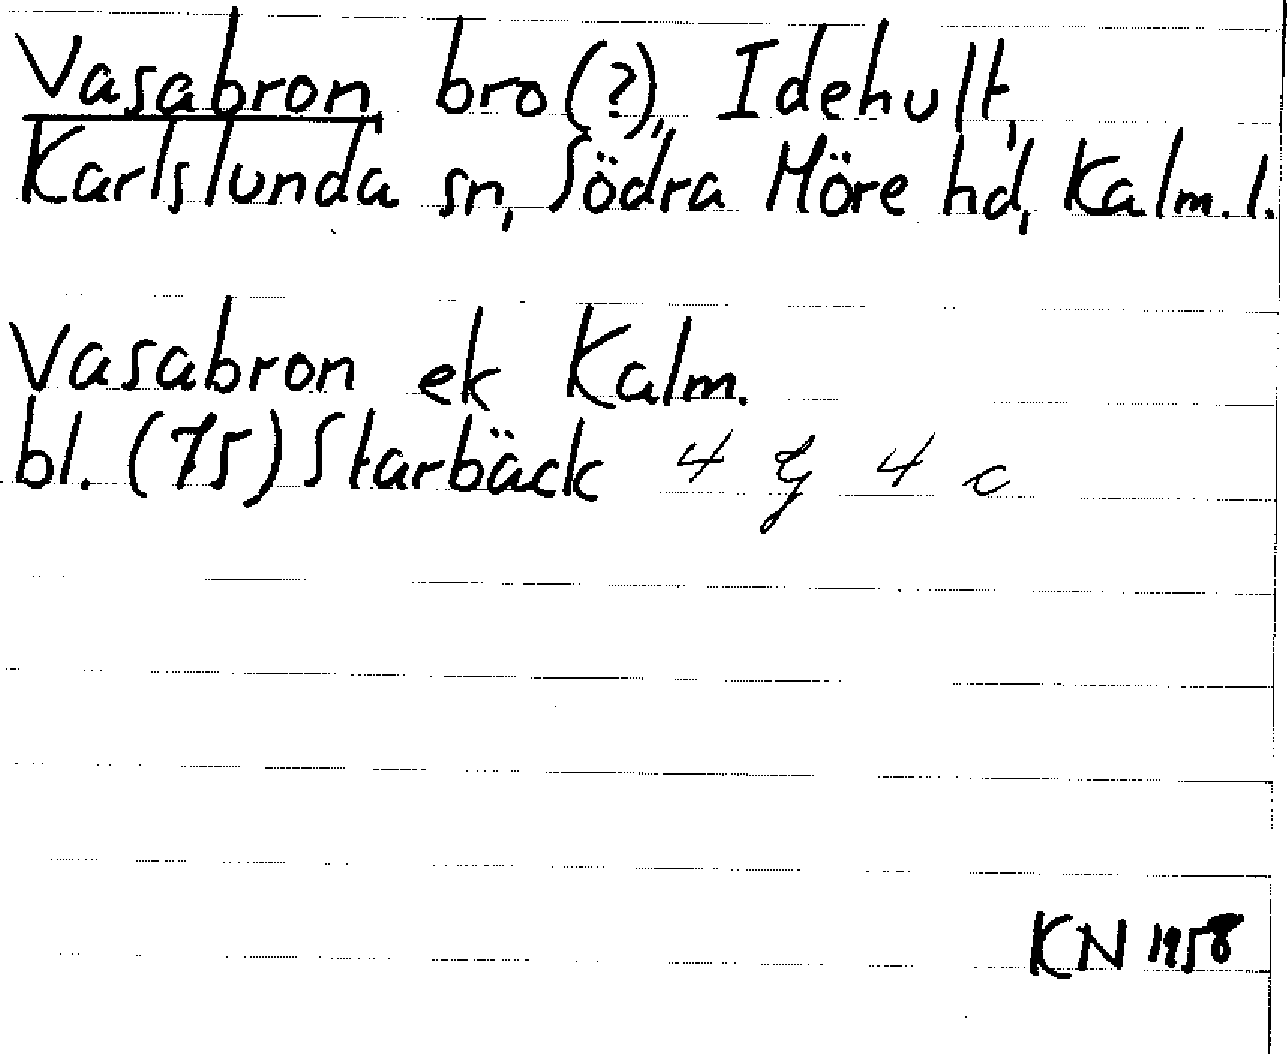 Vasabron, bro (?), Idehult,
Karlslunda sn, Södra Möre hd, Kalm. l.
Vasabron ek Kalm.
bl. (75) Starbäck 4 g 4 c
KN 1958